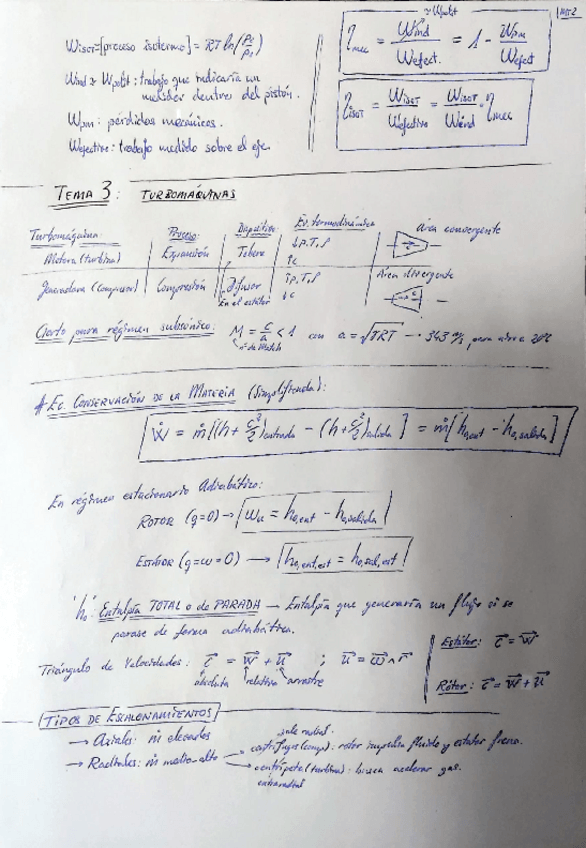 Wisot=[proceso isotermo] = RT ln(P2/P1)
Wind ≈ Wpolit : trabajo que indicaría un
medidor dentro del pistón.
Wpm : pérdidas mecánicas.
Wefectivo: trabajo medido sobre el eje.
≈ Wpolit
ηmec = Wind / Wefect. = 1 - Wpm / Wefect
ηisot = Wisot / Wefectivo = Wisot / Wind · ηmec
TEMA 3: TURBOMÁQUINAS
Turbomáquina: Proceso: Dispositivo: Ev. termodinámica
Motora (turbina) Expansión Tobera ↓P,T,ρ ↑c área convergente
Generadora (compresor) Compresión Difusor En el estátor ↑P,T,ρ ↓c Área divergente
Cierto para régimen subsónico: M = c/a < 1 con a = √γRT ··· 343 m/s para aire a 20ºC
nº de Match
# Ec. CONSERVACIÓN DE LA MATERIA (Simplificada):
Ẇ = ṁ[(h + c²/2)entrada - (h + c²/2)salida] = ṁ[h0,ent - h0,salida]
En régimen estacionario Adiabático:
ROTOR (q=0) → Wu = h0,ent - h0,salida
ESTÁTOR (q=w=0) → h0,ent,est = h0,sal,est
'h0': Entalpía TOTAL o de PARADA — Entalpía que generaría un flujo si se
parase de forma adiabática.
Triángulo de Velocidades: c = w + u ; u = ω ∧ r
absoluta relativa arrastre
Estátor: c = w
Rótor: c = w + u
TIPOS DE ESCALONAMIENTOS
→ Axiales: ṁ elevados
sale radial.
→ Radiales: ṁ medio-alto → centrífugas (comp): rotor impulsa fluido y estator frena.
→ centrípeta (turbina): busca acelerar gas.
entra radial